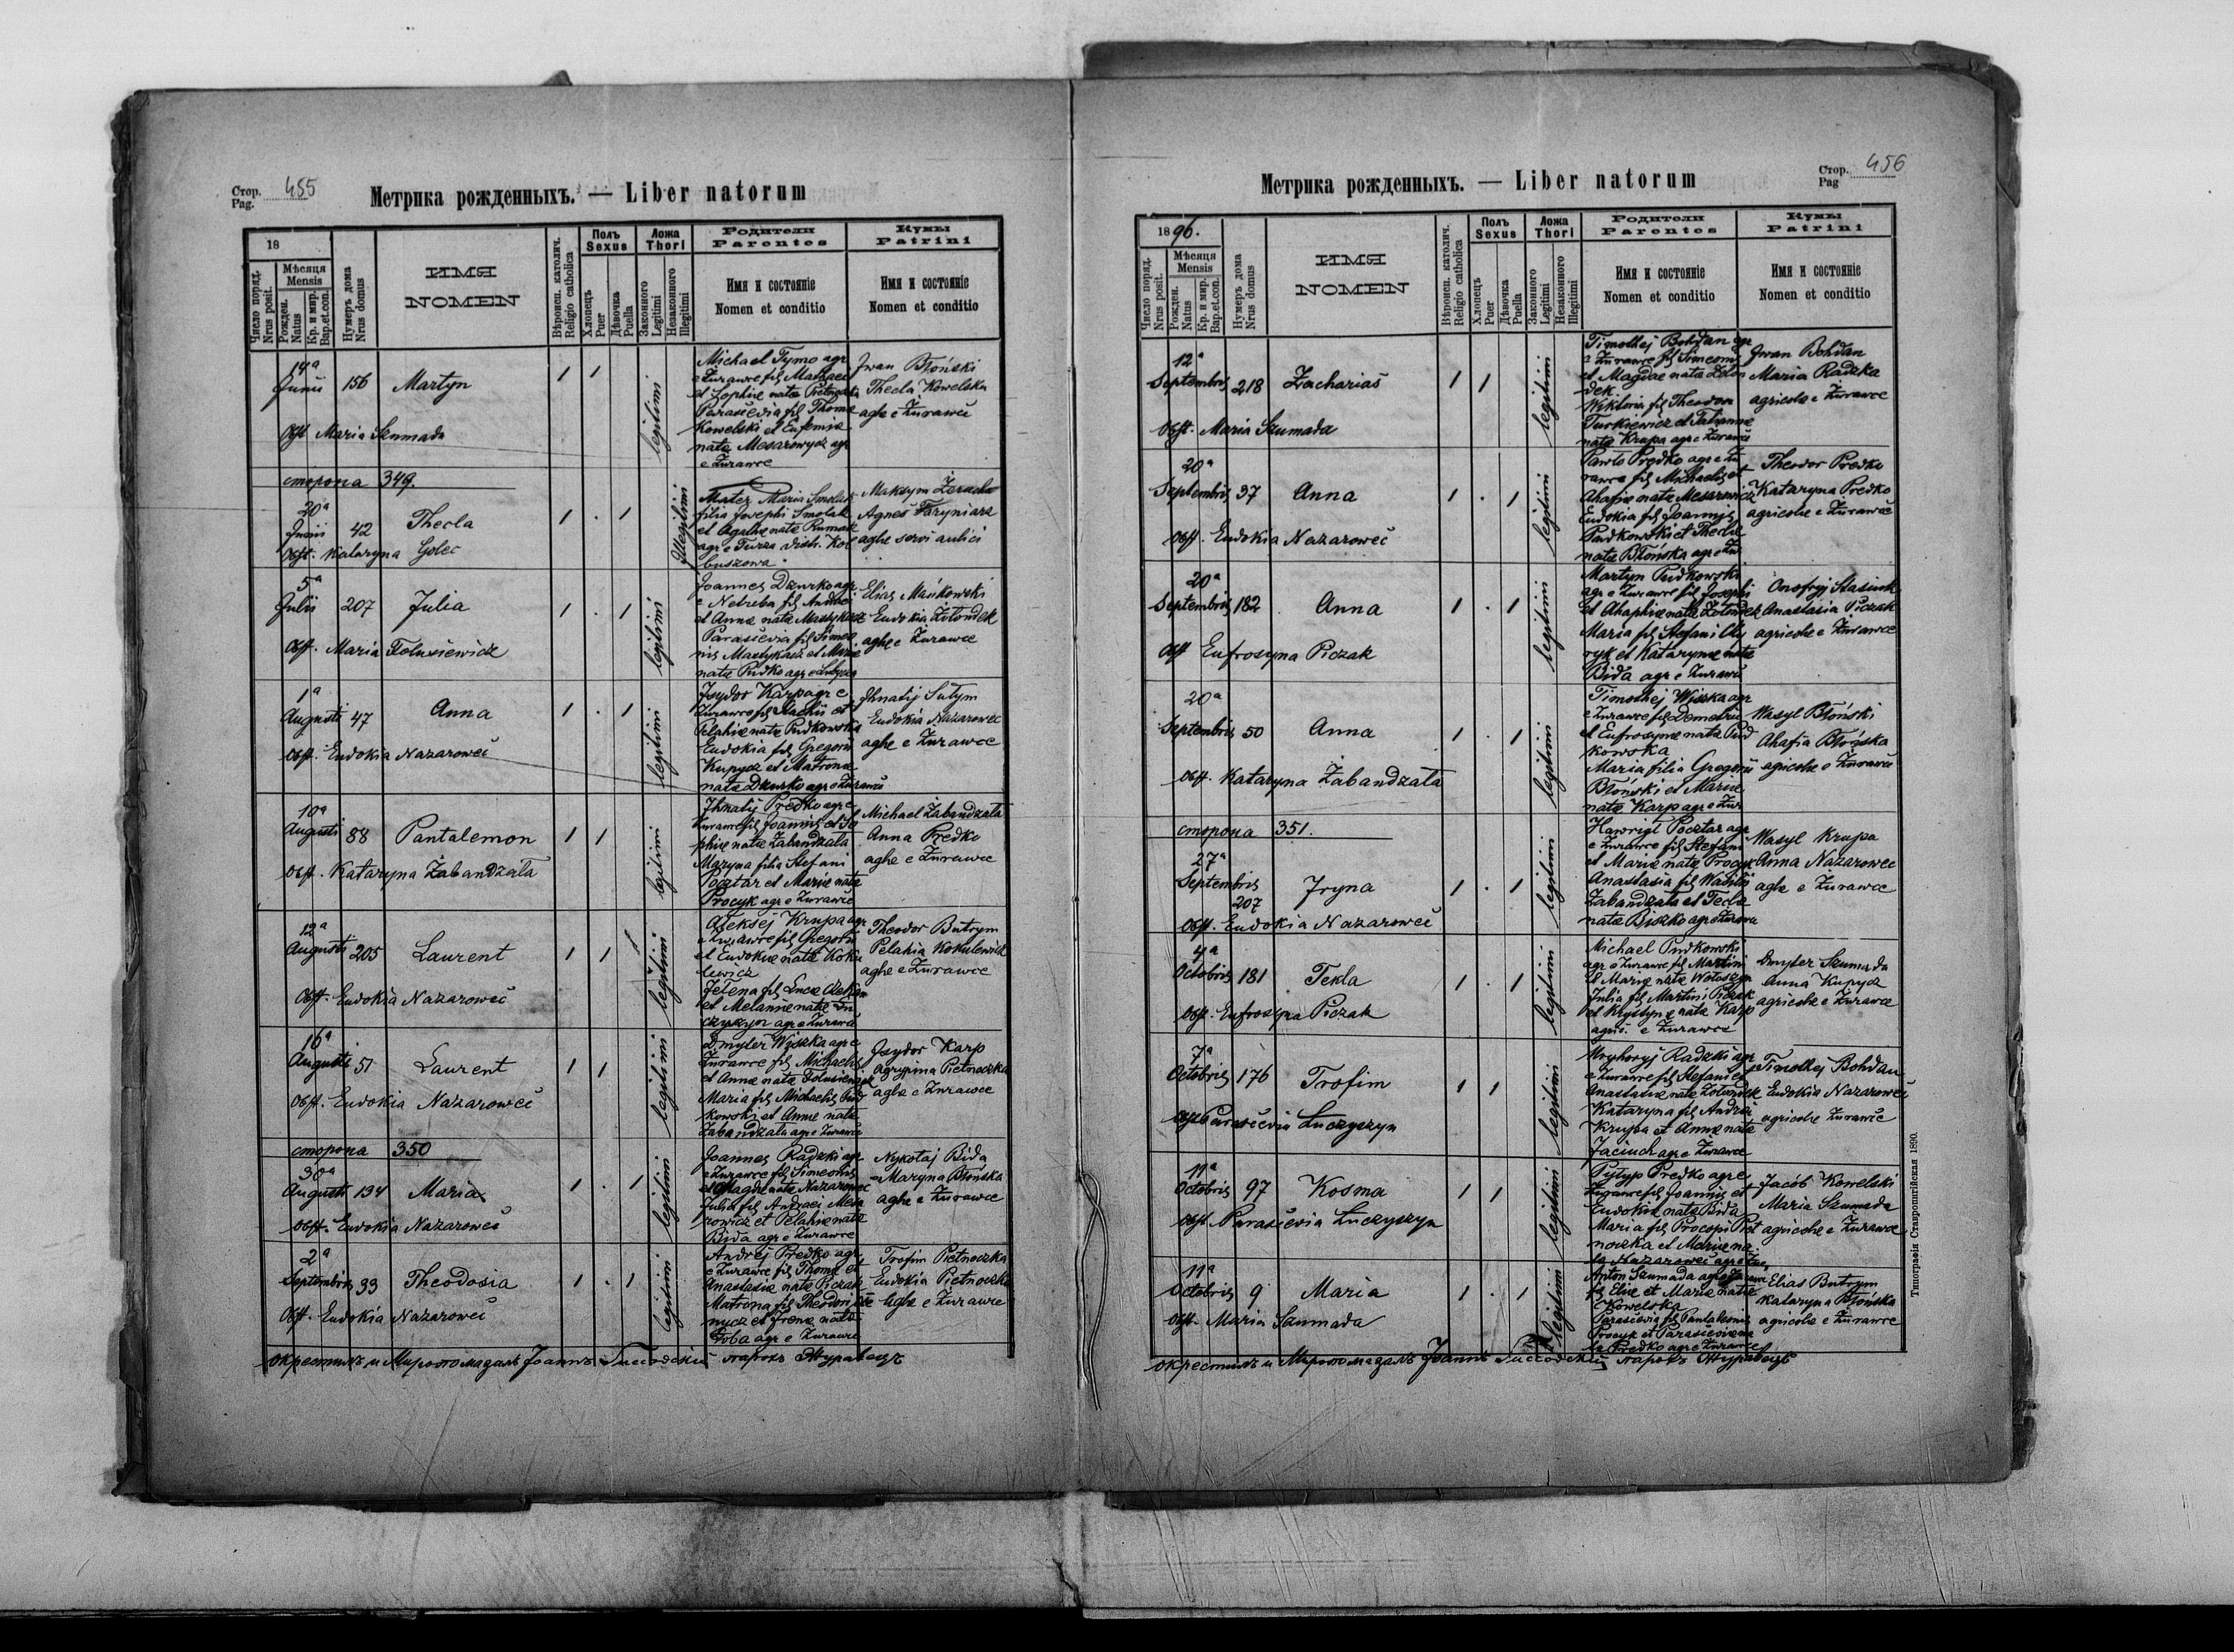 Стор. 455
Pag.
Метрика рожденныхъ. — Liber natorum
18
Число поряд.
Nrus posit.
Мѣсяця
Mensis
Рожден.
Natus
Кр. и мир.
Bap. et con.
Нумеръ дома
Nrus domus
ИМЯ
NOMEN
Вѣроисп. католич.
Religio catholica
Полъ
Sexus
Хлопецъ
Puer
Дѣвочка
Puella
Ложа
Thori
Законного
Legitimi
Незаконного
Illegitimi
Родители
Parentes
Имя и состоянiе
Nomen et conditio
Кумы
Patrini
Имя и состоянiе
Nomen et conditio
14ª
Junii 156 Martyn 1 1 legitimi
Obst. Maria Szumada
Michael Tymo agr
e Żurawce fil Michael
et Sophiæ nata
Parascevia fil Thomæ
Kowelski et Eufemiæ
nata Mesarowycz agr
e Żurawce
Jwan Błoński
Thecla Kowelska
aglæ e Żurawce
сторона 349.
20ª
Junii 42 Thecla 1 . 1 Illegitimi
Obst. Kataryna Golec
Mater Maria Smolak
filia Josephi Smolak
et Agathæ nata Rumak
agr e Turza distr. Kol
buszowa
Maksym Zeracha
Agnes Faryniarz
aglæ servi aulici
5ª
Julii 207 Julia 1 . 1 legitimi
Obst. Maria Tolusiewicz
Joannes Dzurko agr
e Netreba fil Andrei
et Annæ nata Mastykasz
Parascevia fil Simeo
nis Mastykasz et Mariæ
nata Pudko agr e
Elias Mańkowski
Eudokia Zołondek
aglæ e Żurawce
1ª
Augusti 47 Anna 1 . 1 legitimi
Obst. Eudokia Nazarowec
Isydor Karp agr e
Żurawce fil Stachii et
Pelahiæ nata Pudkowska
Eudokia fil Gregorii
Kupycz et Matronæ
nata Dzurko agr e Żurawce
Ihnatij Sutym
Eudokia Nazarowec
aglæ e Żurawce
10ª
Augusti 88 Pantalemon 1 1 legitimi
Obst. Kataryna Żabandzała
Ihnatij Predko agr e
Żurawce fil Joannis et So
phiæ nata Zabandzała
Maryna filia Stefani
Pocztar et Mariæ nata
Procyk agr e Żurawce
Michael Zabandzała
Anna Predko
aglæ e Żurawce
12ª
Augusti 205 Laurent 1 1 legitimi
Obst. Eudokia Nazarowec
Ołeksej Krupa agr
e Żurawce fil Gregorii
et Eudokiæ nata Koku
lewicz
Jełena fil Lucæ
et Melaniæ nata Łu
czyszyn agr e Żurawce
Theodor Butrym
Pelahia Kokulewicz
aglæ e Żurawce
16ª
Augusti 51 Laurent 1 1 legitimi
Obst. Eudokia Nazarowec
Dmyter Wyszka agr e
Żurawce fil Michaelis
et Annæ nata Tolusiewicz
Maria fil Michaelis Pud
kowski et Annæ nata
Zabandzała agr e Żurawce
Isydor Karp
Agrypina Pietnoczka
aglæ e Żurawce
сторона 350
30ª
Augusti 134 Maria 1 . 1 legitimi
Obst. Eudokia Nazarowec
Joannes Radzki agr
e Żurawce fil Simeonis
et Magdæ nata Nazarowec
Julia fil Andreei Mesa
rowicz et Pelahiæ nata
Bida agr e Żurawce
Nykołaj Bida
Maryna Błońska
aglæ e Żurawce
2ª
Septembris 33 Theodosia 1 . 1 legitimi
Obst. Eudokia Nazarowec
Andrej Predko agr
e Żurawce fil Thomæ et
Anastasiæ nata Piczak
Matrona fil Theodori
et Irenæ nata
agr e Żurawce
Trofim Pietnoczka
Eudokia Pietnoczka
aglæ e Żurawce
окрестилъ и Мировомазалъ Joаннъ парохъ Журавецъ
Стор. 456
Pag
Метрика рожденныхъ. — Liber natorum
1896.
Число поряд.
Nrus posit.
Мѣсяця
Mensis
Рожден.
Natus
Кр. и мир.
Bap. et. con.
Нумеръ дома
Nrus domus
ИМЯ
NOMEN
Вѣроисп. католич.
Religio catholica
Полъ
Sexus
Хлопецъ
Puer
Дѣвочка
Puella
Ложа
Thori
Законного
Legitimi
Незаконного
Illegitimi
Родители
Parentes
Имя и состоянiе
Nomen et conditio
Кумы
Patrini
Имя и состоянiе
Nomen et conditio
12ª
Septembris 218 Zacharias 1 1 legitimi
Obst. Maria Szumada
Timothej Bohdan agr
e Żurawce fil Simeonis
et Magdæ nata Zołon
dek
Wiktoria fil Theodor
Turkiewicz et Tatianæ
nata Krupa agr e Żurawce
Jwan Bohdan
Maria Radzka
agricolæ e Żurawce
20ª
Septembris 37 Anna 1 . 1 legitimi
Obst. Eudokia Nazarowec
Pawło Predko agr e Żu
rawce fil Michaelis et
Ahafiæ nata Mesarowicz
Eudokia fil Joannis
Pudkowski et Theclæ
nata Błońska agr e Żur
Theodor Predko
Kataryna Predko
agricolæ e Żurawce
20ª
Septembris 182 Anna 1 . 1 legitimi
Obst Eufrosyna Piczak
Martyn Pudkowski
agr e Żurawce fil Josephi
et Ahaphiæ nata Zołondek
Maria fil Stefani Oly
ryk et Katarynæ nata
Bida agr e Żurawce
Onofryj Stasiuk
Anastasia Piczak
agricolæ e Żurawce
20ª
Septembris 50 Anna 1 . 1 legitimi
Obst. Kataryna Żabandzała
Timothej Wyszka agr
e Żurawce fil Demetrii
et Eufrosynæ nata Pud
kowska
Maria filia Gregorii
Błoński et Mariæ
nata Karp agr e Żur
Wasyl Błoński
Ahafia Błońska
agricolæ e Żurawce
сторона 351.
27ª
Septembris
207 Jryna 1 . 1 legitimi
Obst. Eudokia Nazarowec
Hawrigl Pocztar agr
e Żurawce fil Stefani
et Mariæ nata Procyk
Anastasia fil Wasilii
Zabandzała et Teclæ
nata Biszko agr e Żurawce
Wasyl Krupa
Anna Nazarowec
aglæ e Żurawce
4ª
Octobris 181 Tekla 1 . 1 legitimi
Obst. Eufrosyna Piczak
Michael Pudkowski
agr e Żurawce fil Martini
et Mariæ nata Wołoszyn
Julia fil Martini Piczak
et Krystynæ nata Karp
agric. e Żurawce
Dmyter Szumada
Anna Kupycz
agricolæ e Żurawce
7ª
Octobris 176 Trofim 1 1 legitimi
Obst Parascevia Łuczyszyn
Hryhoryj Radzki agr
e Żurawce fil Stefani et
Anastasiæ nata Zołondek
Kataryna fil Andrei
Krupa et Annæ nata
Jaciuch agr e Żurawce
Timothej Bohdan
Eudokia Nazarowec
agricolæ Żurawce
11ª
Octobris 97 Kosma 1 1 legitimi
Obst Parascevia Łuczyszyn
Pyłyp Predko agr e
Żurawce fil Joannis et
Eudokiæ nata Bida
Maria fil Procopi Piet
noczka et Mariæ na
ta Nazarowec agr e Żur
Jacób Kowelski
Maria Szumada
agricolæ e Żurawce
11ª
Octobris 9 Maria 1 . 1 legitimi
Obst. Maria Szumada
Anton Szumada agr e Żurawce
fil Eliæ et Mariæ nata
Kowelska
Parascevia fil Pantaleonis
Procyk et Parasceviæ na
ta Predko agr e Żurawce
Elias Butrym
Kataryna Błońska
agricolæ e Żurawce
окрестилъ и Мировомазалъ Joаннъ парохъ Журавецъ
Типографiя Ставропигiйская 1890.